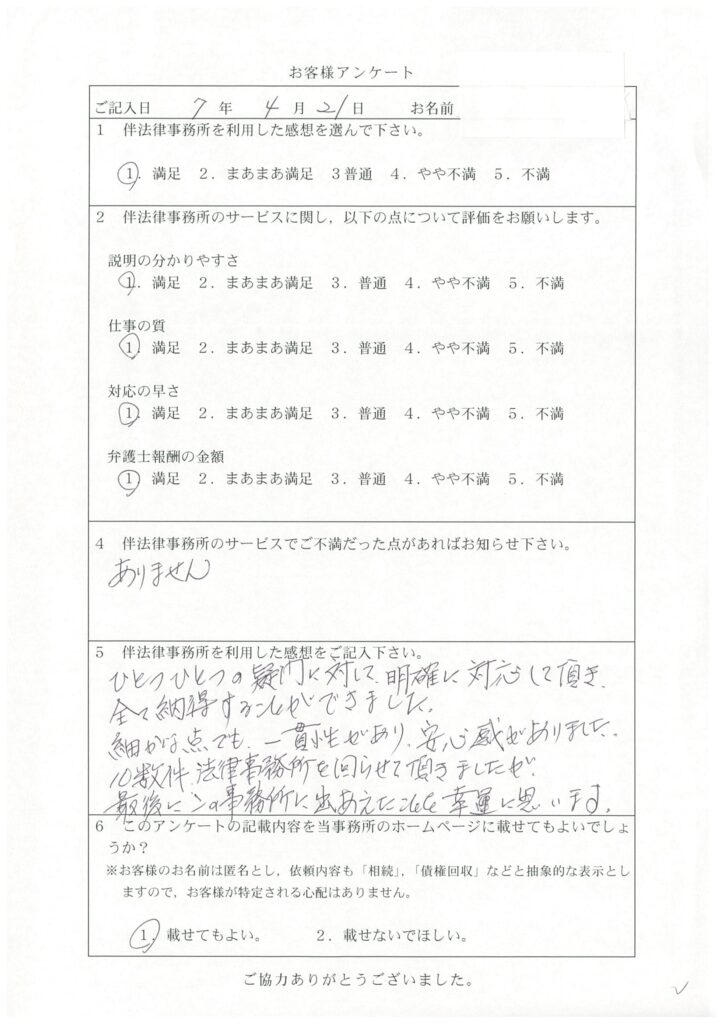 お客様アンケート
ご記入日 7 年 4 月 21 日 お名前
1 伴法律事務所を利用した感想を選んで下さい。
1. 満足 2. まあまあ満足 3 普通 4. やや不満 5. 不満
2 伴法律事務所のサービスに関し,以下の点について評価をお願いします。
説明の分かりやすさ
1. 満足 2. まあまあ満足 3. 普通 4. やや不満 5. 不満
仕事の質
1. 満足 2. まあまあ満足 3. 普通 4. やや不満 5. 不満
対応の早さ
1. 満足 2. まあまあ満足 3. 普通 4. やや不満 5. 不満
弁護士報酬の金額
1 満足 2. まあまあ満足 3. 普通 4. やや不満 5. 不満
4 伴法律事務所のサービスでご不満だった点があればお知らせ下さい。
ありません
5 伴法律事務所を利用した感想をご記入下さい。
ひとつひとつの疑問に対して、明確に対応して頂き、
全て納得することができました。
細かな点でも、一貫性があり、安心感がありました。
10数件、法律事務所を回らせて頂きましたが、
最後にこの事務所に出あえたことを幸運に思います。
6 このアンケートの記載内容を当事務所のホームページに載せてもよいでしょ
うか?
※お客様のお名前は匿名とし,依頼内容も「相続」,「債権回収」などと抽象的な表示とし
ますので,お客様が特定される心配はありません。
1. 載せてもよい。 2. 載せないでほしい。
ご協力ありがとうございました。